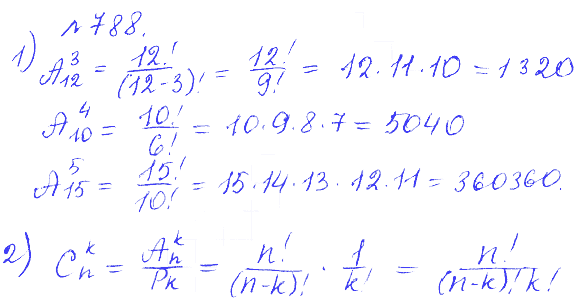 № 788.
1) A₁₂³ = 12!/(12-3)! = 12!/9! = 12·11·10 = 1320
A₁₀⁴ = 10!/6! = 10·9·8·7 = 5040
A₁₅⁵ = 15!/10! = 15·14·13·12·11 = 360360.
2) Cₙᵏ = Aₙᵏ/Pₖ = n!/(n-k)! · 1/k! = n!/(n-k)!k!